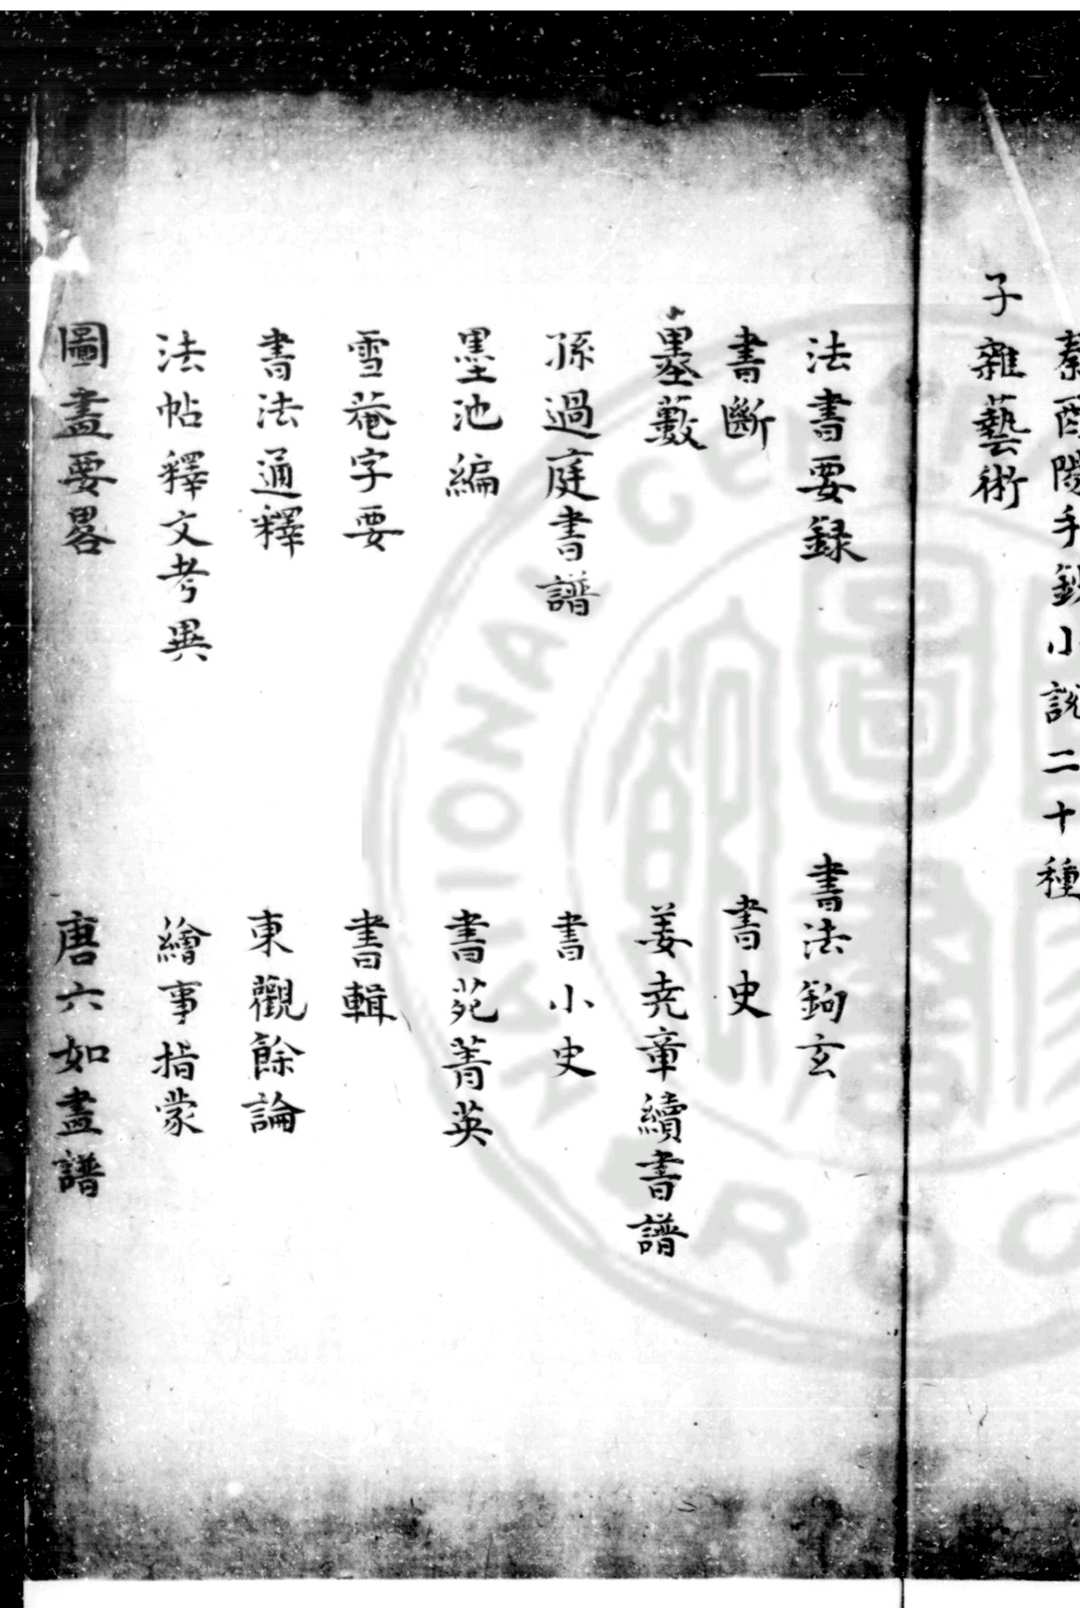 秦酉陽手鈔小說二十種
子雜藝術
法書要録 書法鉤玄
書斷 書史
墨藪 姜尭章續書譜
孫過庭書譜 書小史
墨池編 書苑菁英
雪菴字要 書輯
書法通釋 東觀餘論
法帖釋文考異 繪事指蒙
圖畫要畧 唐六如畫譜
NATIONAL CENTRAL